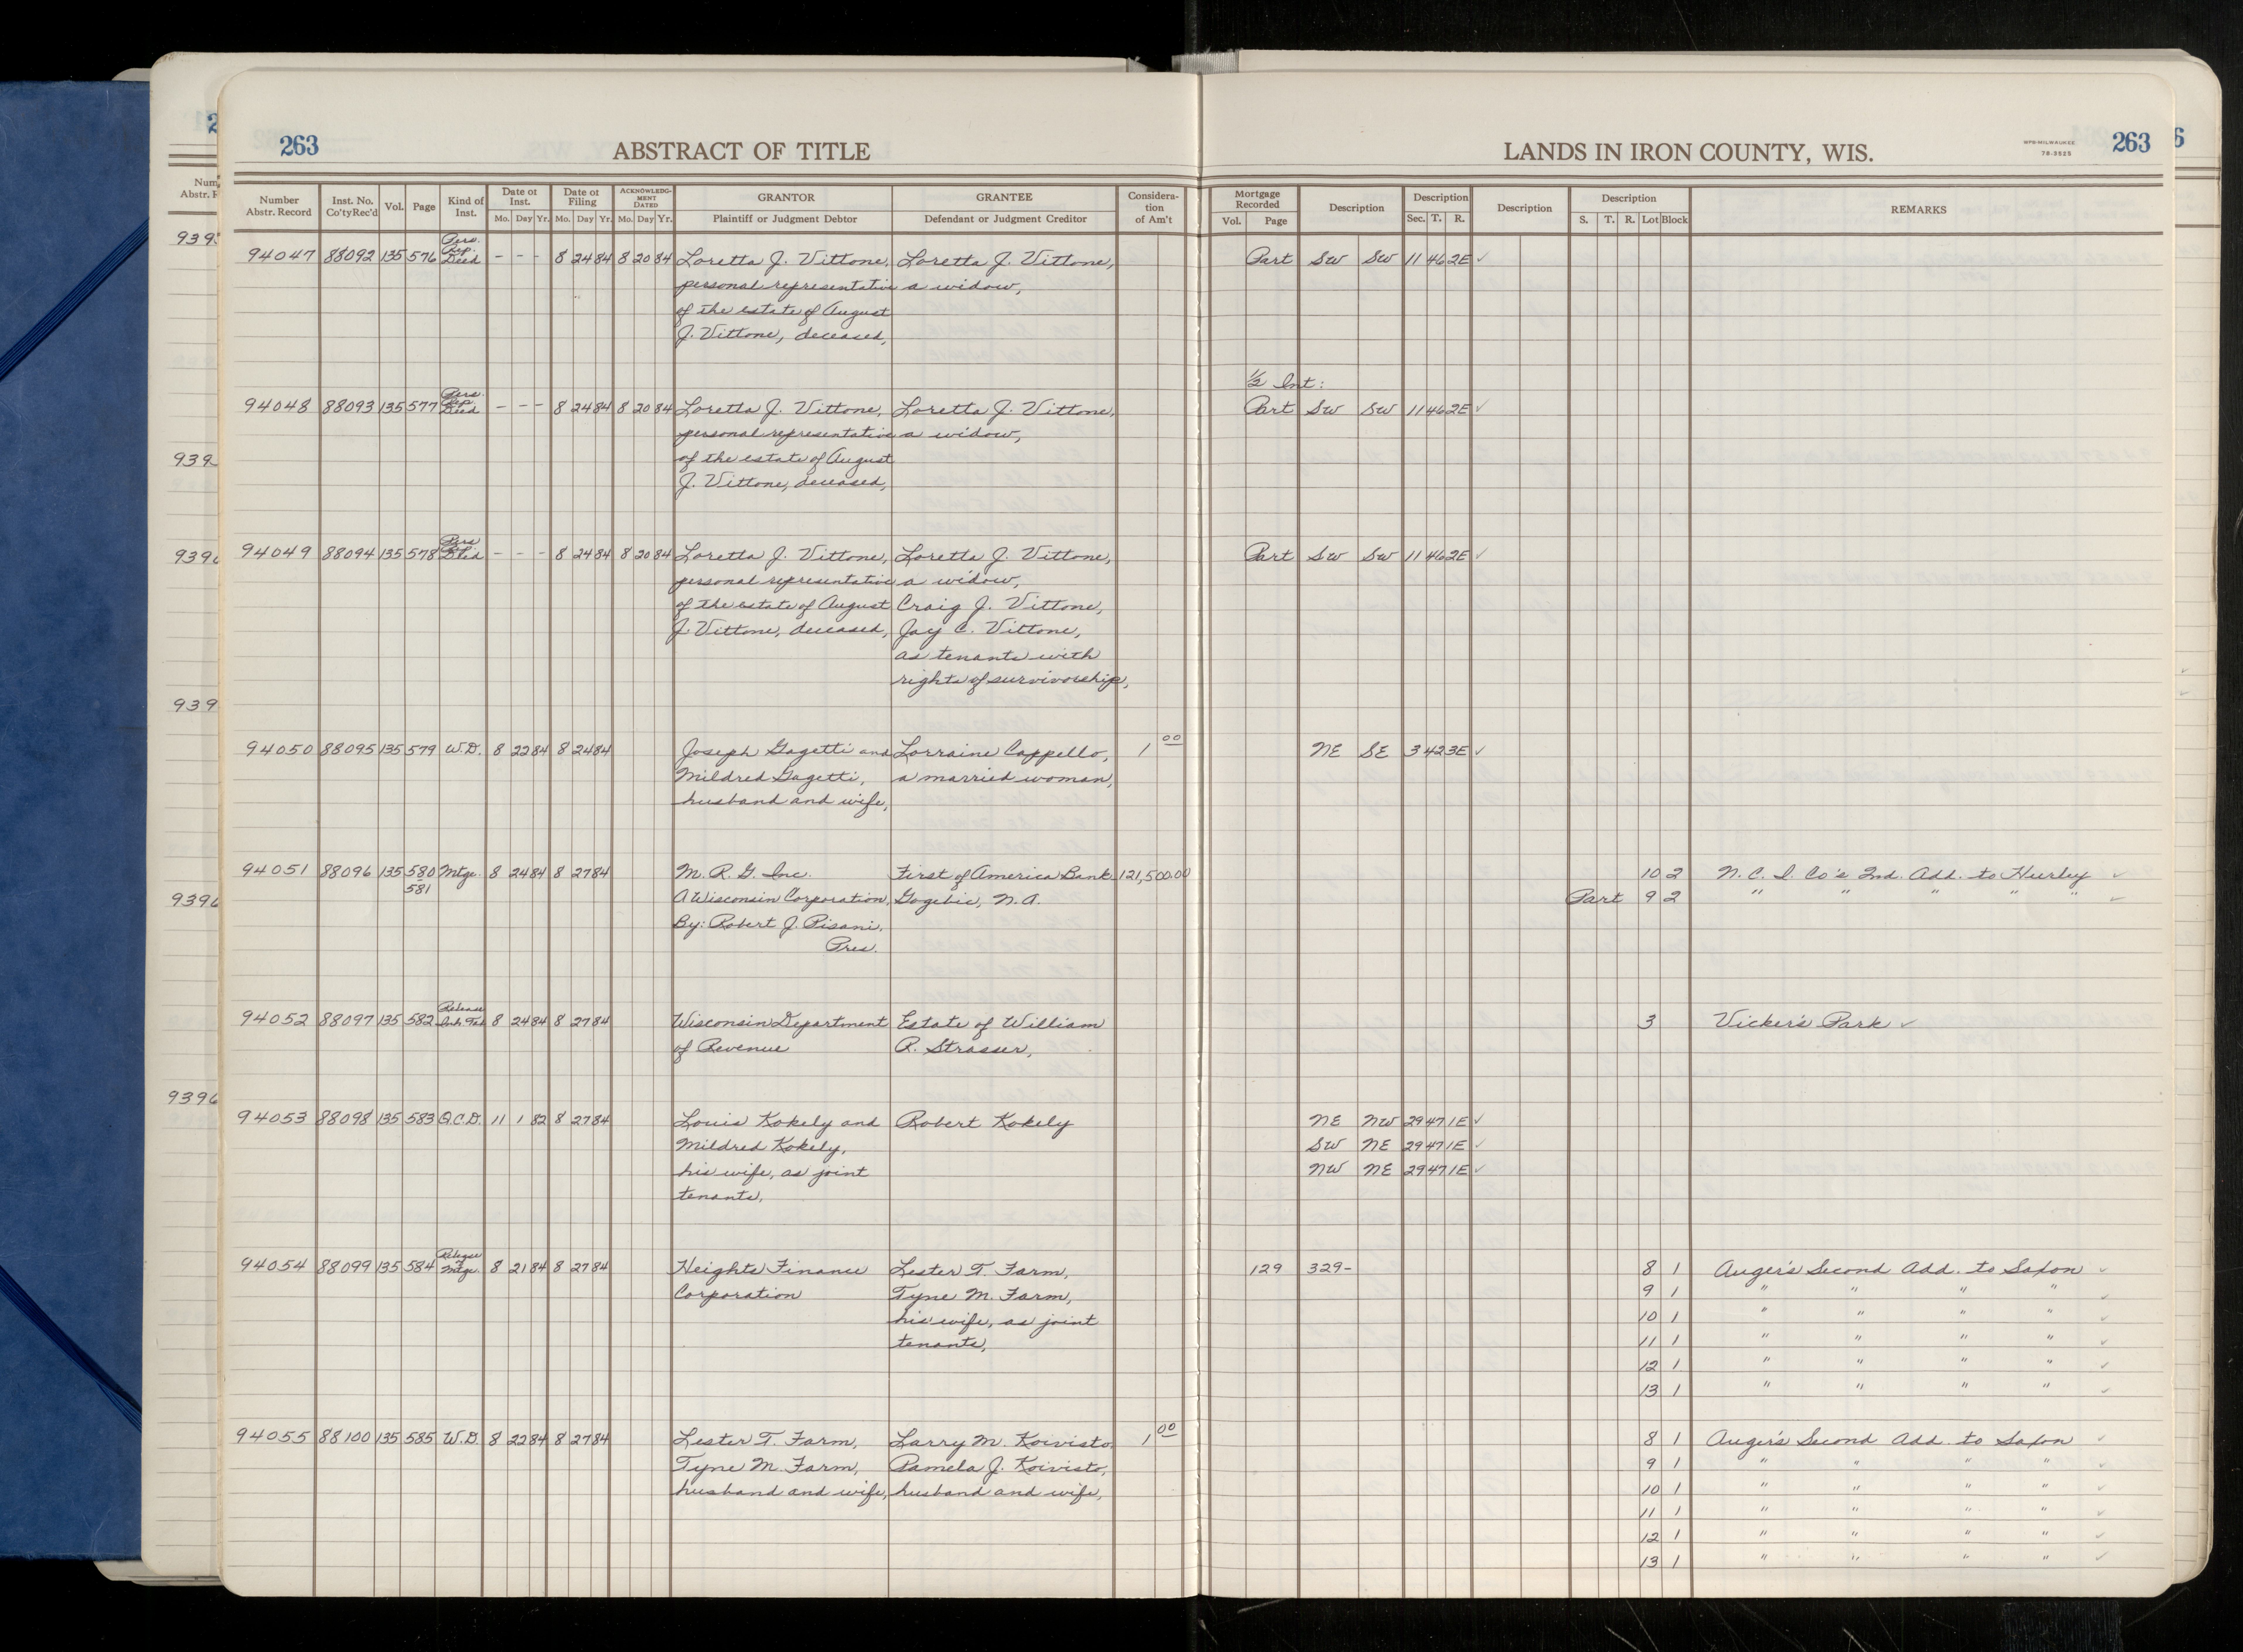 263 ABSTRACT OF TITLE
LANDS IN IRON COUNTY, WIS. WPB-MILWAUKEE 78-3525 263
Number Abstr. Record Inst. No. Co'ty Rec'd Vol. Page Kind of Inst. Date of Inst. Mo. Day Yr. Date of Filing Mo. Day Yr. ACKNOWLEDGMENT DATED Mo. Day Yr. GRANTOR Plaintiff or Judgment Debtor GRANTEE Defendant or Judgment Creditor Consideration of Am't
Mortgage Recorded Vol. Page Description Description Sec. T. R. Description Description S. T. R. Lot Block REMARKS
94047 88092 135 576 Pers. Rep. Deed - - - 8 24 84 8 20 84 Loretta J. Vittone, Loretta J. Vittone, Part SW SW 11 46 2E ✓
personal representative a widow,
of the estate of August
J. Vittone, deceased,
1/2 Int:
94048 88093 135 577 Pers. Rep. Deed - - - 8 24 84 8 20 84 Loretta J. Vittone, Loretta J. Vittone, Part SW SW 11 46 2E ✓
personal representative a widow,
of the estate of August
J. Vittone, deceased,
94049 88094 135 578 Pers Rep. Deed - - - 8 24 84 8 20 84 Loretta J. Vittone, Loretta J. Vittone, Part SW SW 11 46 2E ✓
personal representative a widow,
of the estate of August Craig J. Vittone,
J. Vittone, deceased, Jay C. Vittone,
as tenants with
rights of survivorship,
94050 88095 135 579 W.D. 8 22 84 8 24 84 Joseph Gagetti and Lorraine Cappello, 1 00 NE SE 3 42 3E ✓
Mildred Gagetti, a married woman,
husband and wife,
94051 88096 135 580 Mtge. 8 24 84 8 27 84 M. R. G. Inc. First of America Bank 121,500.00 10 2 N. C. I. Co's 2nd. Add. to Hurley ✓
581 A Wisconsin Corporation, Gogebic, N.A. Part 9 2 " " " " " ✓
By: Robert J. Pisani,
Pres.
94052 88097 135 582 Release Inh. Tax 8 24 84 8 27 84 Wisconsin Department Estate of William 3 Vicker's Park ✓
of Revenue R. Strasser,
94053 88098 135 583 Q.C.D. 11 1 82 8 27 84 Louis Kokely and Robert Kokely NE NW 29 47 1E ✓
Mildred Kokely, SW NE 29 47 1E ✓
his wife, as joint NW NE 29 47 1E ✓
tenants,
94054 88099 135 584 Release of Mtge. 8 21 84 8 27 84 Heights Finance Lester T. Farm, 129 329- 8 1 Auger's Second Add. to Saxon ✓
Corporation Tyne M. Farm, 9 1 " " " " ✓
his wife, as joint 10 1 " " " " ✓
tenants, 11 1 " " " " ✓
12 1 " " " " ✓
13 1 " " " " ✓
94055 88100 135 585 W.D. 8 22 84 8 27 84 Lester T. Farm, Larry M. Koivisto, 1 00 8 1 Auger's Second Add. to Saxon ✓
Tyne M. Farm, Pamela J. Koivisto, 9 1 " " " " ✓
husband and wife, husband and wife, 10 1 " " " " ✓
11 1 " " " " ✓
12 1 " " " " ✓
13 1 " " " " ✓